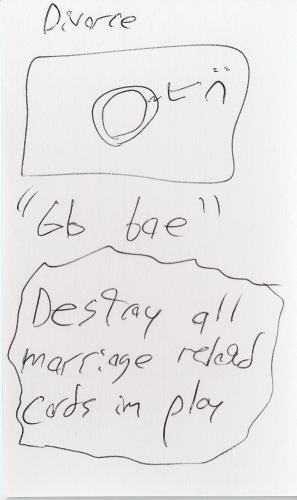 Divorce
"Gb bae"
Destroy all
marriage related
cards in play